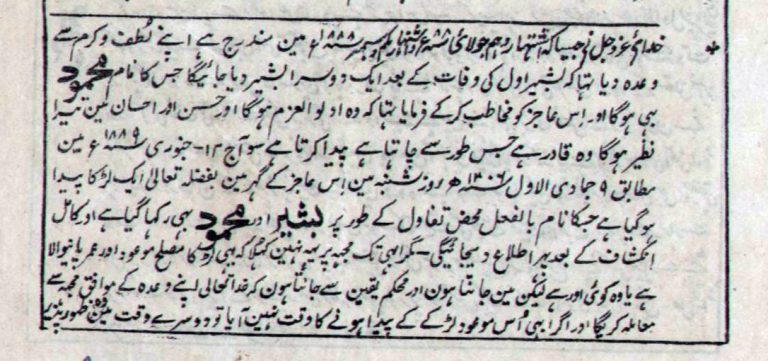 * خدائے عزوجل نے جیسا کہ اشتہار دہم جولائی ۱۸۸۸ء و اشتہار یکم دسمبر ۱۸۸۸ء مین مندرج ہے اپنے لُطف و کرم سے
وعدہ دیا تہا کہ بشیر اول کی وفات کے بعد ایک دوسرا بشیر دیا جائیگا جس کا نام محمود
بہی ہوگا اور اِس عاجز کو مخاطب کرکے فرمایا تہا کہ وہ اولوالعزم ہوگا اور حسن اور احسان مین تیرا
نظیر ہوگا وہ قادر ہے جس طور سے چاہتا ہے پیدا کرتا ہے سو آج ۱۲- جنوری ۱۸۸۹ء مین
مطابق ۹ جمادی الاول ۱۳۰۶ھ روز شنبہ مین اِس عاجز کے گہر مین بفضلہ تعالیٰ ایک لڑکا پیدا
ہوگیا ہے جسکا نام بالفعل محض تفاول کے طور پر بشیر اور محمود بہی رکہا گیا ہے اور کامل
انکشاف کے بعد پہر اطلاع دیجائیگی - مگر ابہی تک مجہہ پر یہہ نہین کُہلا کہ یہی لڑکا مصلح موعود اور عمر پانیوالا
ہے یا وہ کوئی اور ہے لیکن مین جانتا ہون اور محکم یقین سے جانتا ہون کہ خدا تعالیٰ اپنے وعدہ کے موافق مجہہ سے
معاملہ کریگا اور اگر ابہی اُس موعود لڑکے کے پیدا ہونے کا وقت نہین آیا تو دوسرے وقت مین وہ ظہور پذیر